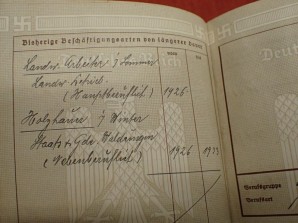 Bisherige Beschäftigungsarten von längerer Dauer
Landw. Arbeiter i/ Sommer
Landw. Betrieb
(Hauptberuflich) 1926
Holzhauer i/ Winter
Staats
(Nebenberuflich) 1926 1933
Berufsgruppe
Berufsart